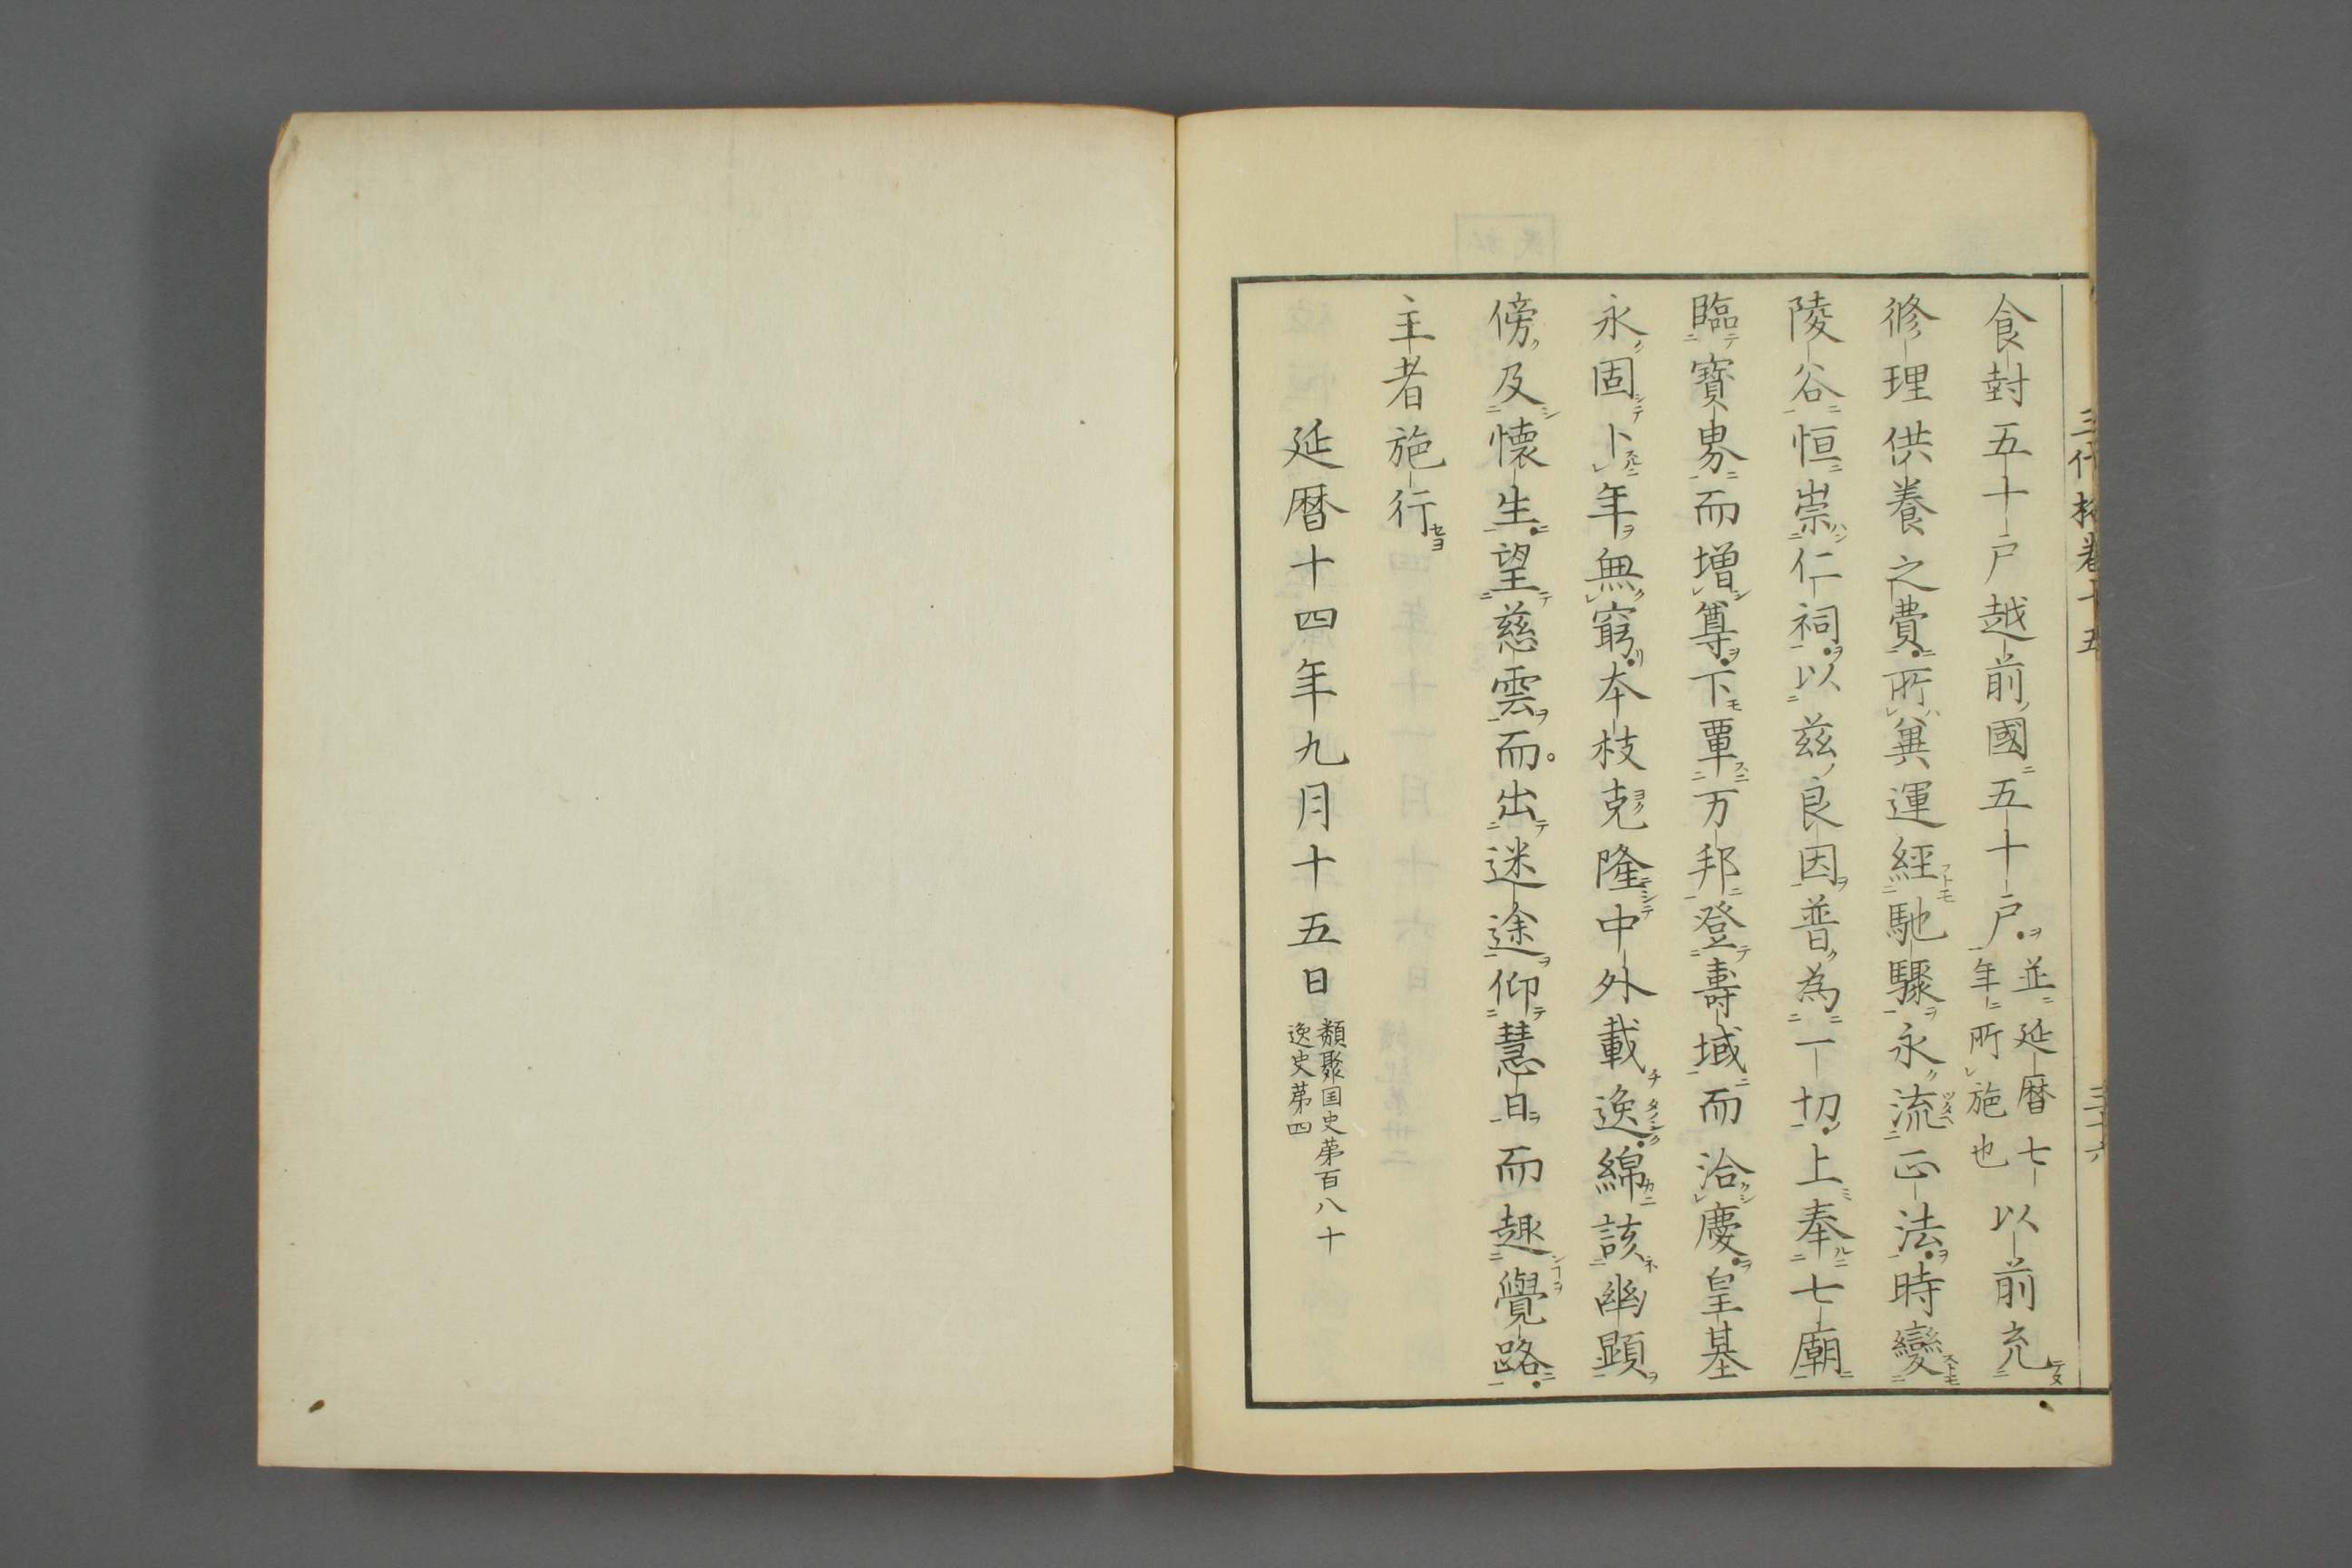 三代格卷十五
三十六
食封五十戸越前國五十戸並延暦七
年所施也以前充
修理供養之費所兾運經馳驟永流正法時變
陵谷恒崇仁祠以兹良因普為一切上奉七廟
臨寳界而増尊下覃万邦登壽域而洽慶皇基
永固卜年無窮本枝克隆中外載逸綿該幽顯
傍及懐生望慈雲而出迷途仰慧日而趣覺路
主者施行
延暦十四年九月十五日
類聚国史苐百八十
逸史苐四